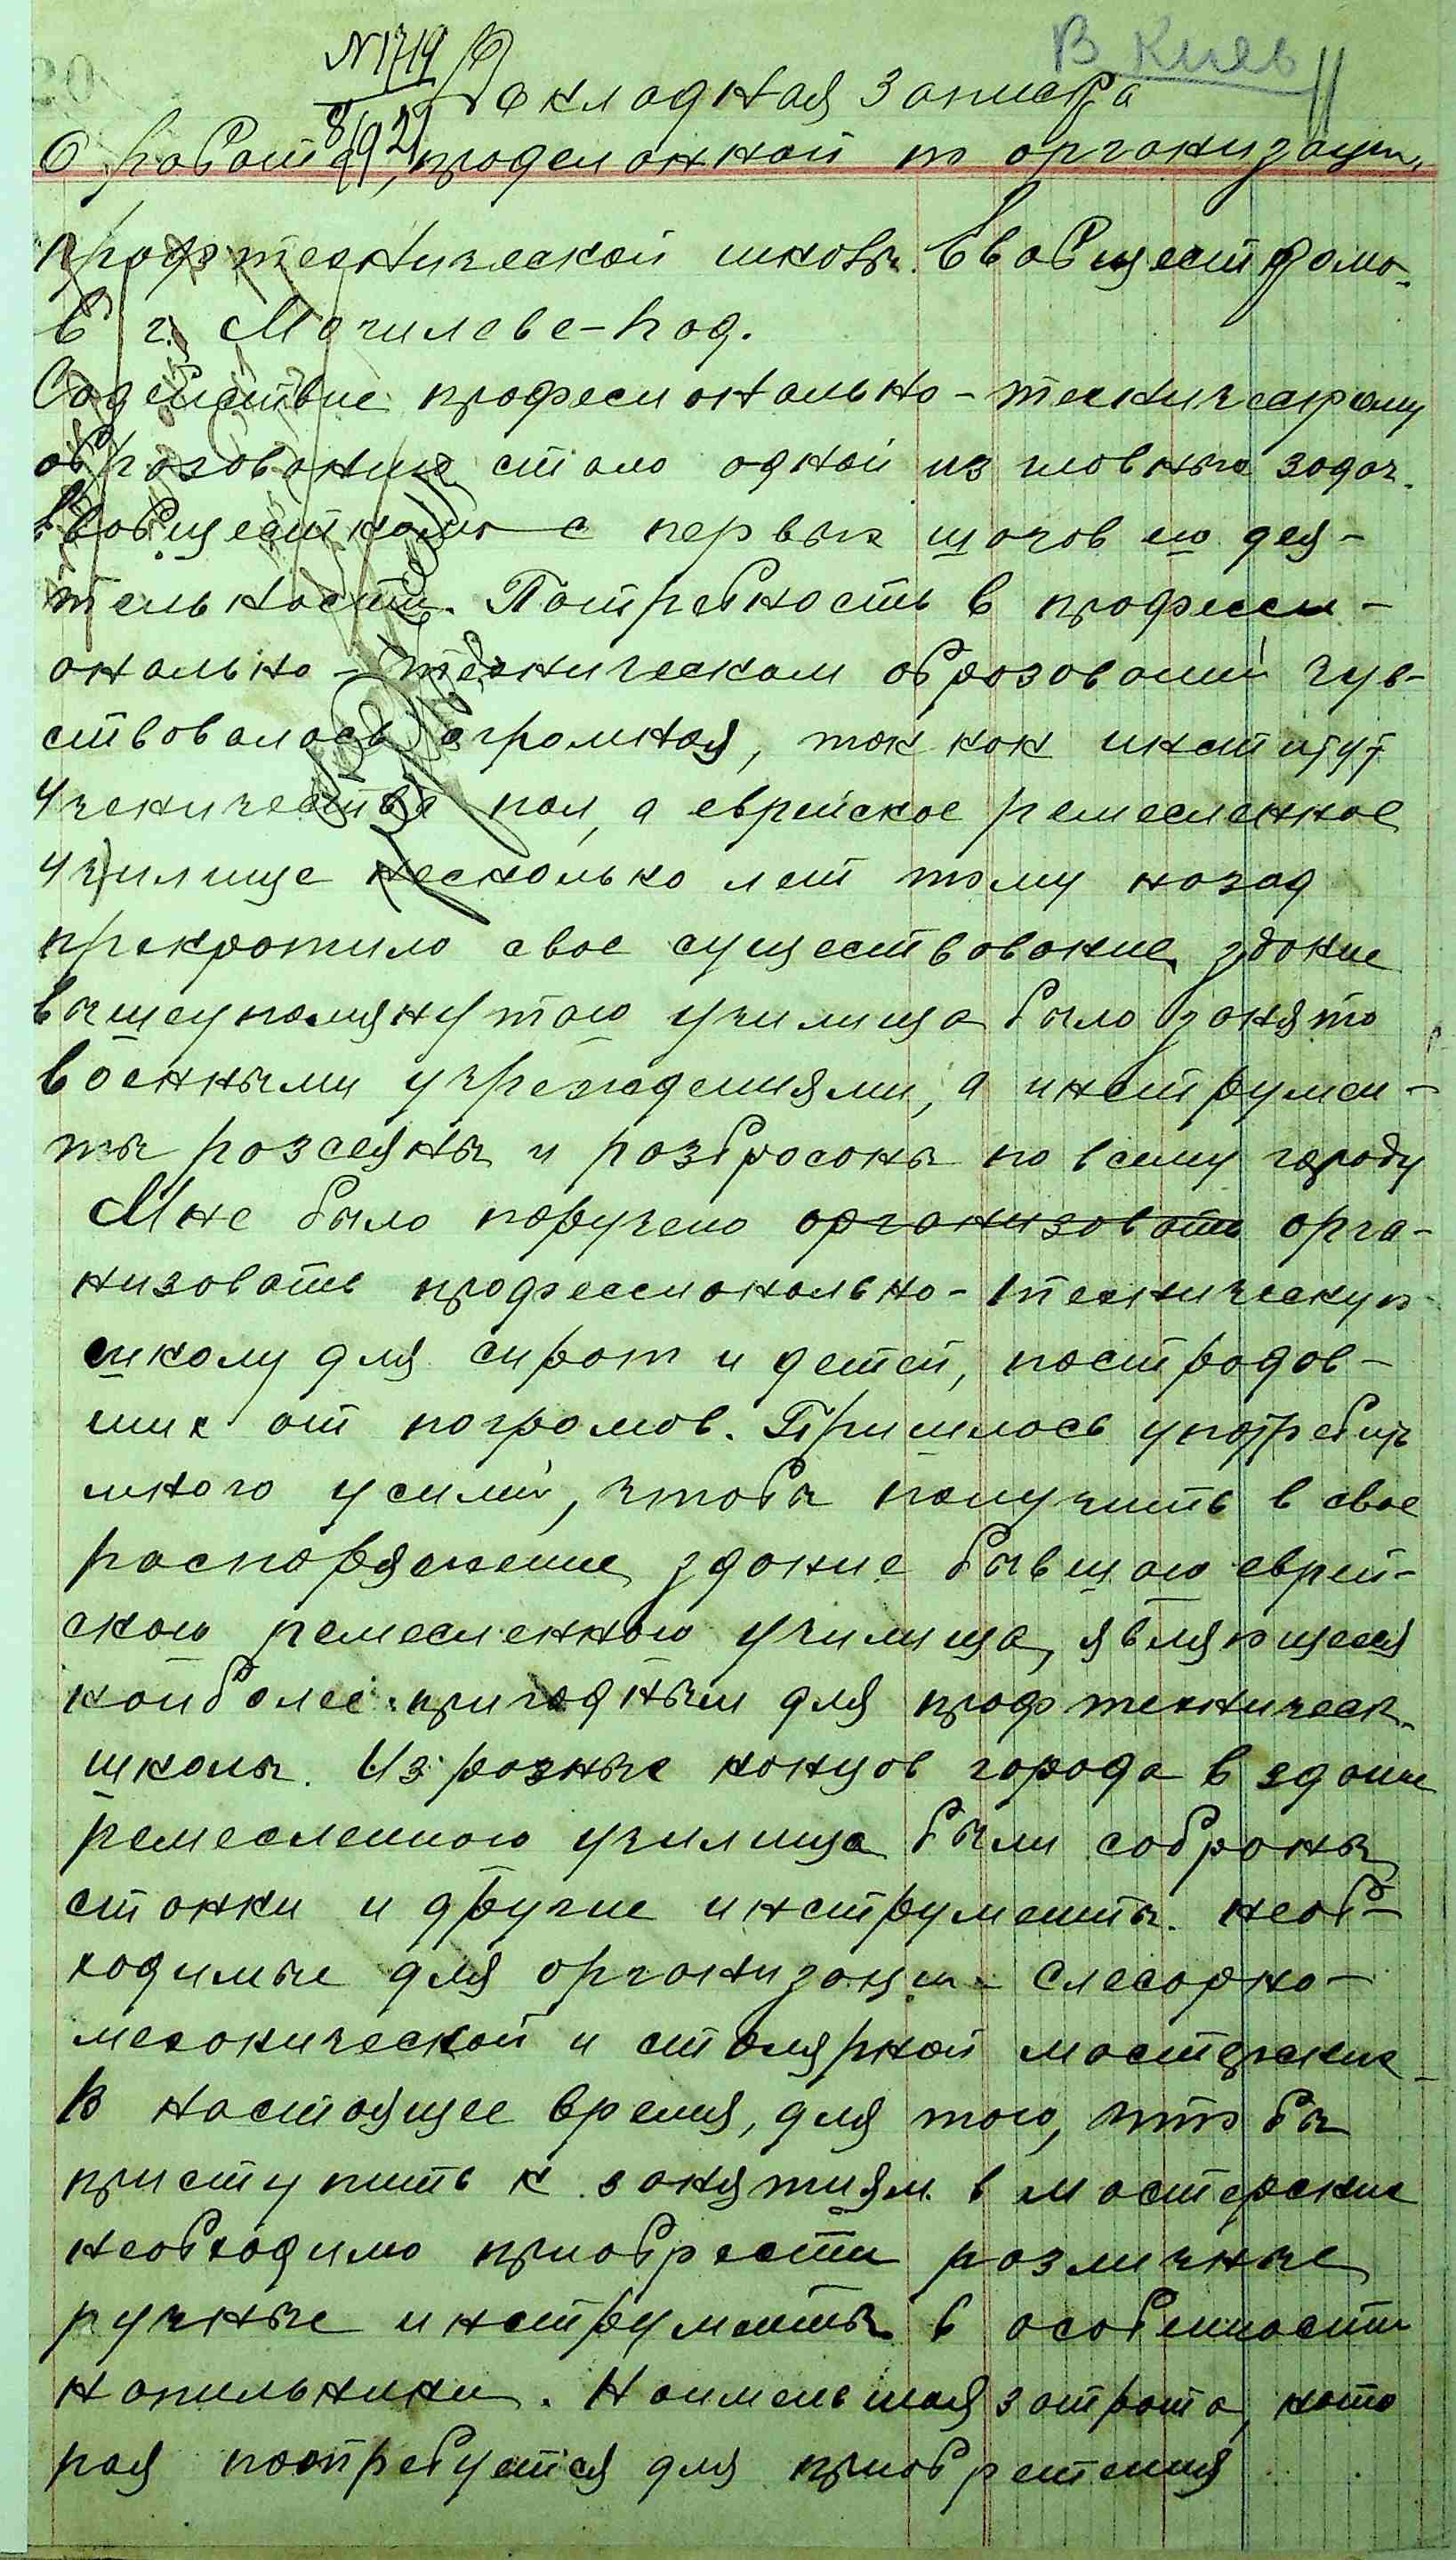 В Киев
N1719
Докладная записка
О работе, проделанной по организации
профтехнической школы Евобщесткома
в г. Могилеве-Под.
Содействие професионально-техническому
образованию стало одной из главных задач
Евобщесткома с первых шагов его дея-
тельности. Потребность в професси-
онально-техническом образовании чув-
ствовалась огромная, так как институт
ученичества пал, а еврейское ремесленное
училище несколько лет тому назад
прекратило свое существование, здание
вышеупомянутого училища было занято
военными учреждениями, а инструмен-
ты разсеяны и разбросаны по всему городу
Мне было поручено организовать орга-
низовать профессионально-техническую
школу для сирот и детей, пострадав-
ших от погромов. Пришлось употребить
много усилий, чтобы получить в свое
распоряжение здание бывшаго еврей-
ского ремесленного училища, являющееся
наиболее пригодным для профтехническ.
школы. Из разных концов города в здание
ремесленного училища были собраны
станки и другие инструменты необ-
ходимые для организации слесарно-
механической и столярной мастерских
В настоящее время, для того, чтобы
приступить к занятиям в мастерских
необходимо приобрести различные
ручные инструменты в особенности
напильники. Наименьшая затрата, кото
рая потребуется для приобретения